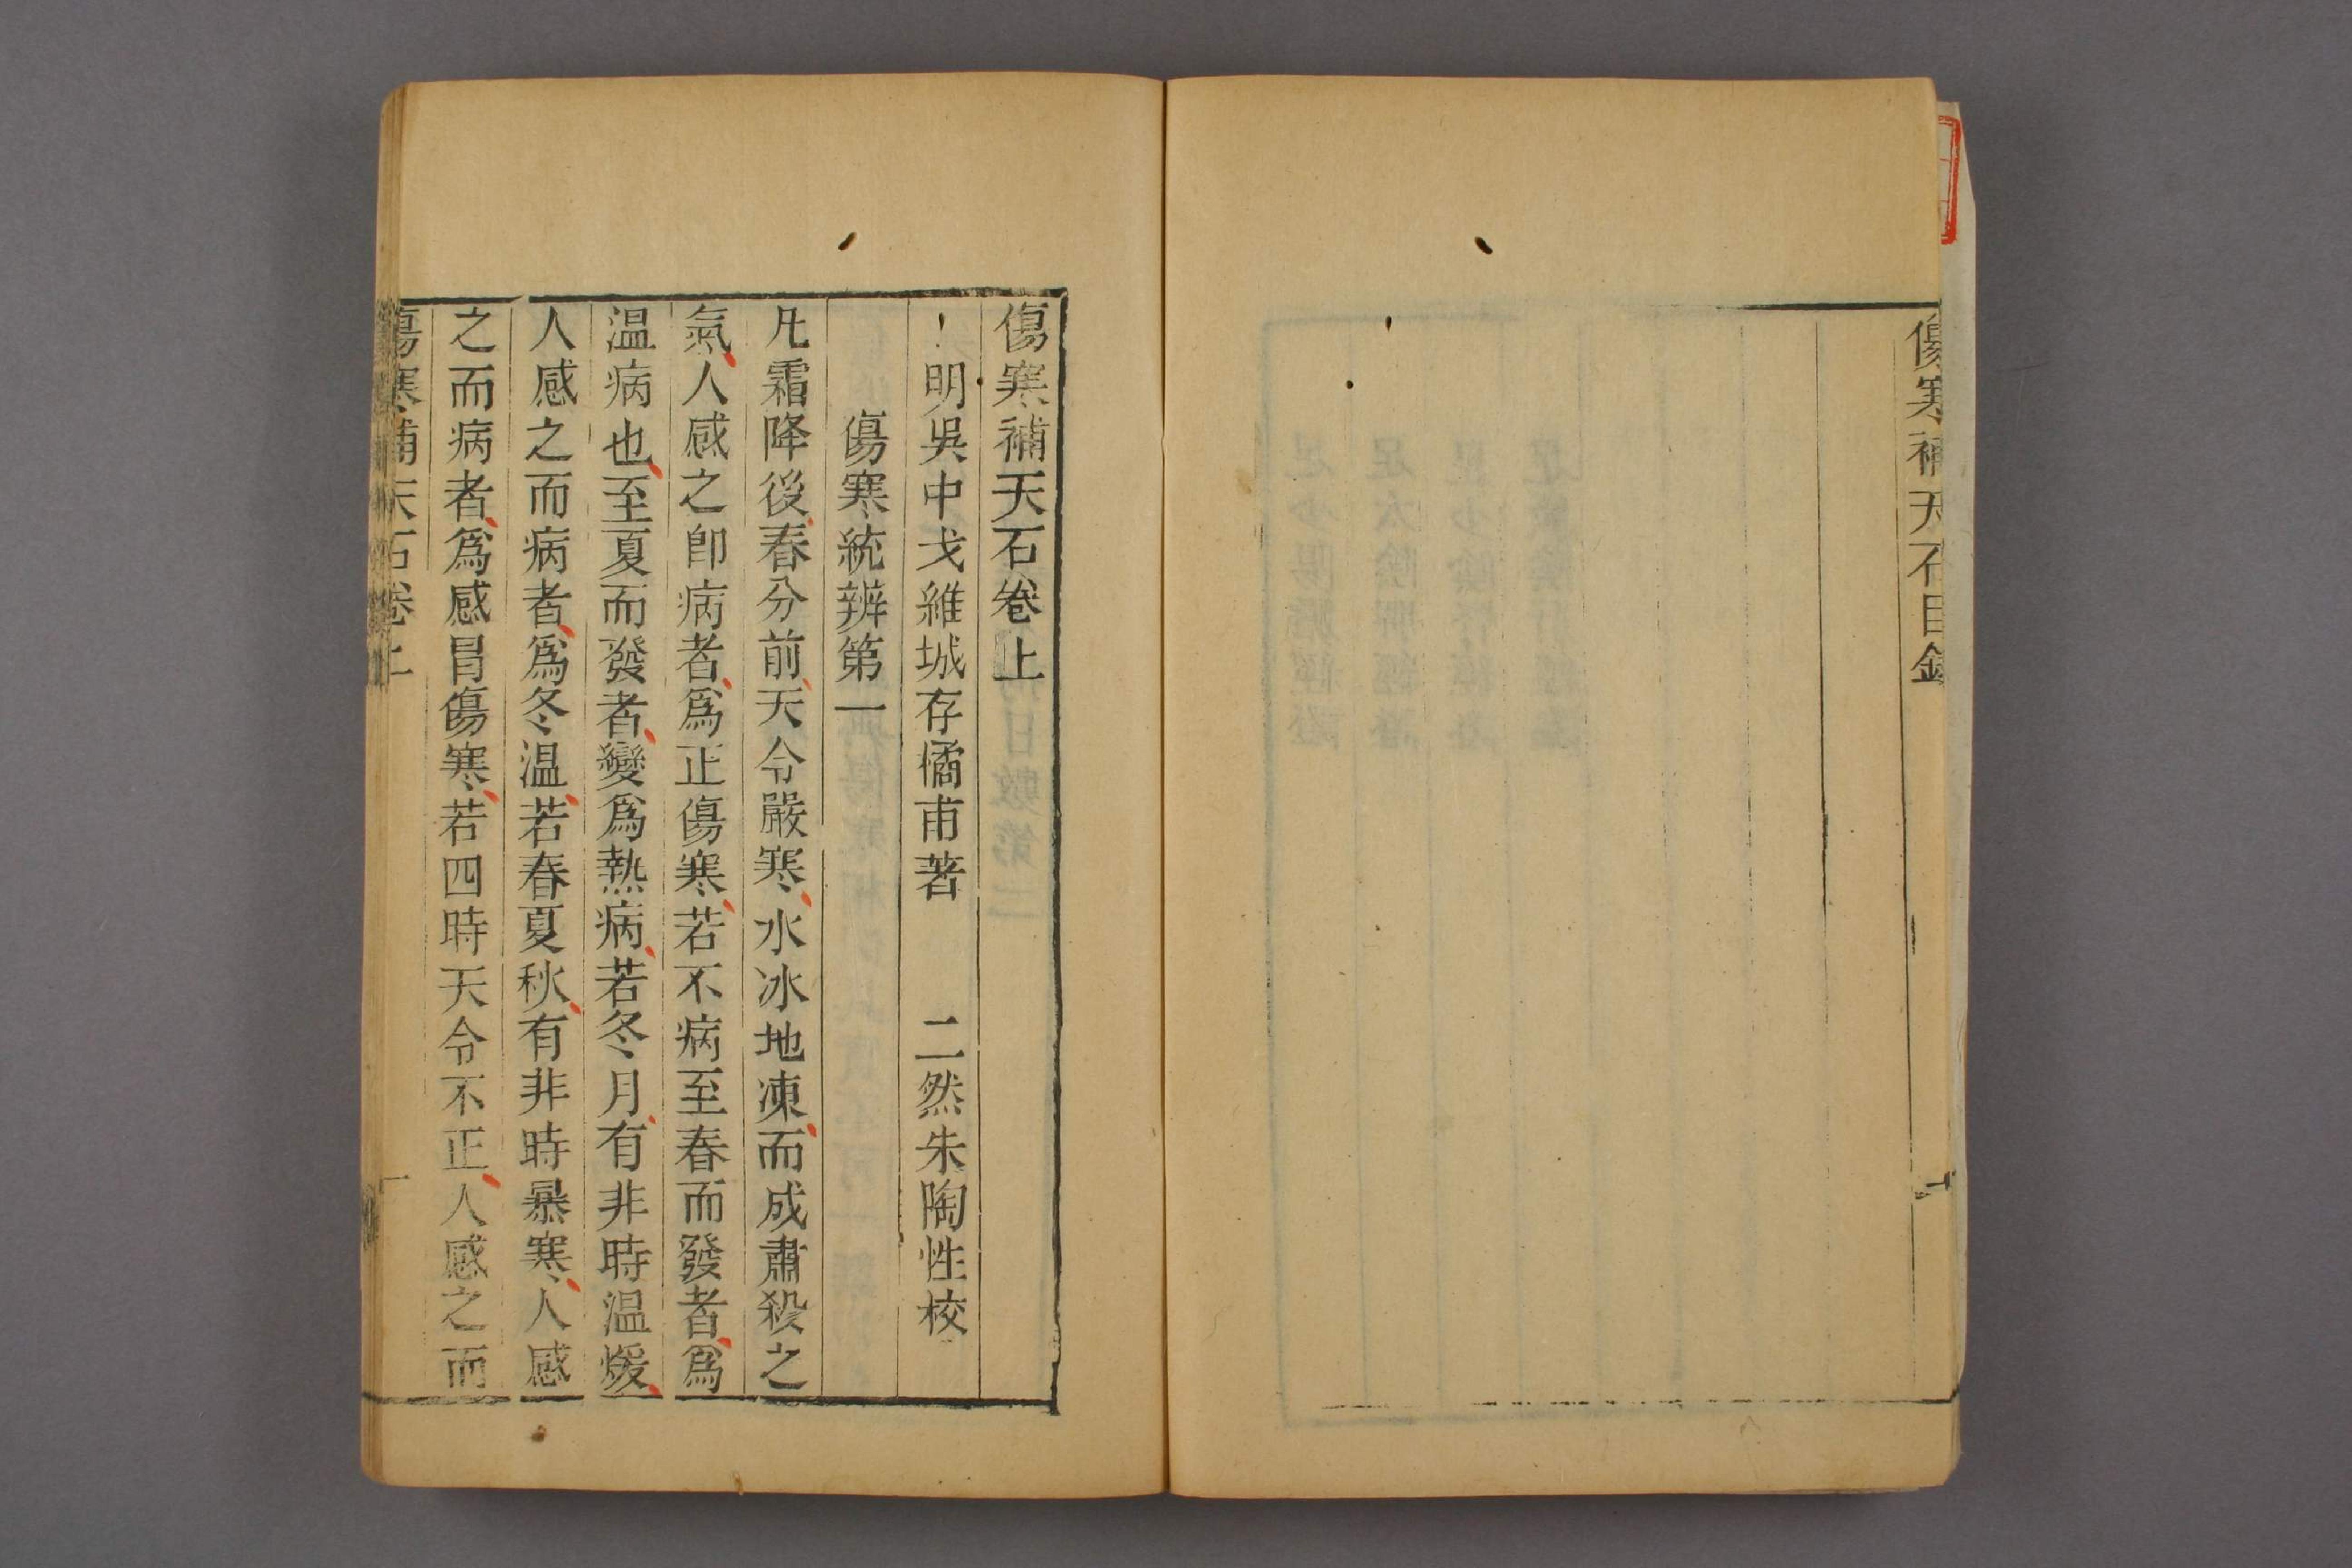 傷寒補天石目錄
傷寒補天石卷上
明吳中戈維城存橘甫著 二然朱陶性校
傷寒統辨第一
凡霜降後春分前天令嚴寒水冰地凍而成肅殺之
氣人感之卽病者爲正傷寒若不病至春而發者爲
温病也至夏而發者變爲熱病若冬月有非時温煖
人感之而病者爲冬温若春夏秋有非時暴寒人感
之而病者爲感冒傷寒若四時天令不正人感之而
傷寒補天石卷上 一